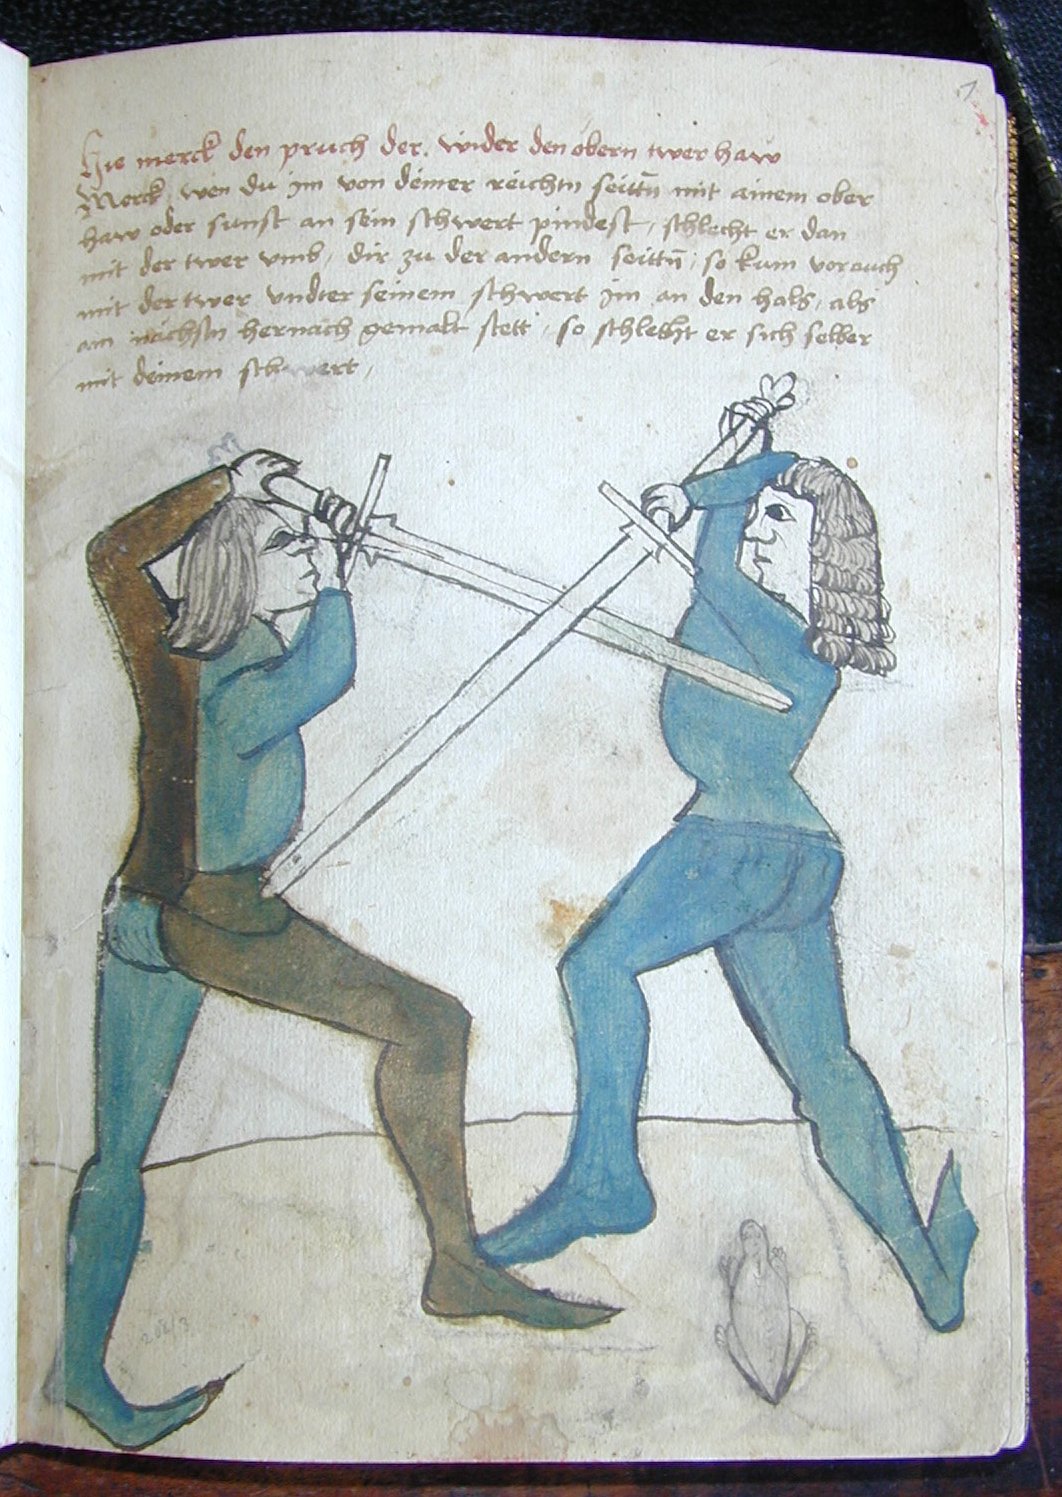 1
Hie merck den pruch der. wider den obern twer haw
Merck, wen du im von deiner reichtn seittn̄ mit ainem ober
haw oder sunst an sein schwert pindest, schlecht er dan
mit der twer vmb, dir zu der andern seittn̄, so kum vor auch
mit der twer vndter seinem schwert im an den hals, als
am nachstn hernach gemalt stett, so schlecht er sich selber
mit deinem schwert,